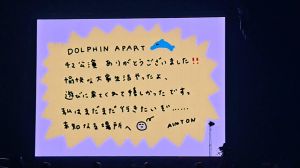 DOLPHIN APART
公演 ありがとうございました!!
愉快な大家生活やったよ、
遊びに来てくれて嬉しかったですっ
私はまだまだ行きたいぞ......
未知なる場所へ AIMYON